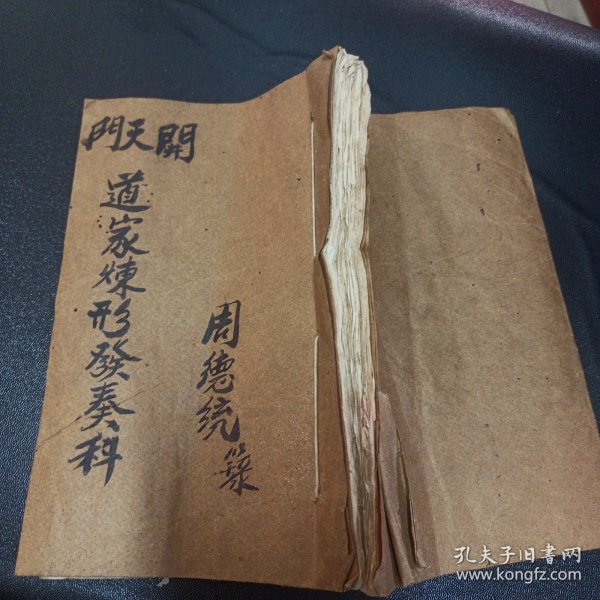 開天門
道家煉形發奏科
周德统箓
孔夫子旧书网
www.kongfz.com